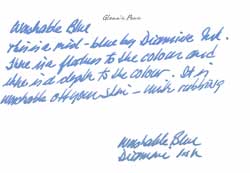 Glenn's Pens
Washable Blue
This is a mid-blue by Diamine Ink.
There is a flatness to the colour and
there is a depth to the colour. It is
washable off your skin - with rubbing
Washable Blue
Diamine Ink